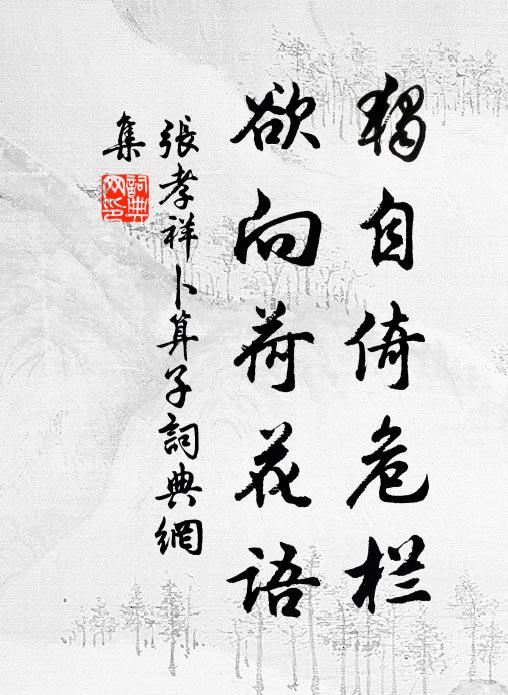 獨自倚危栏
欲向荷花语
張孝祥卜算子詞典網
集
詞典
网印